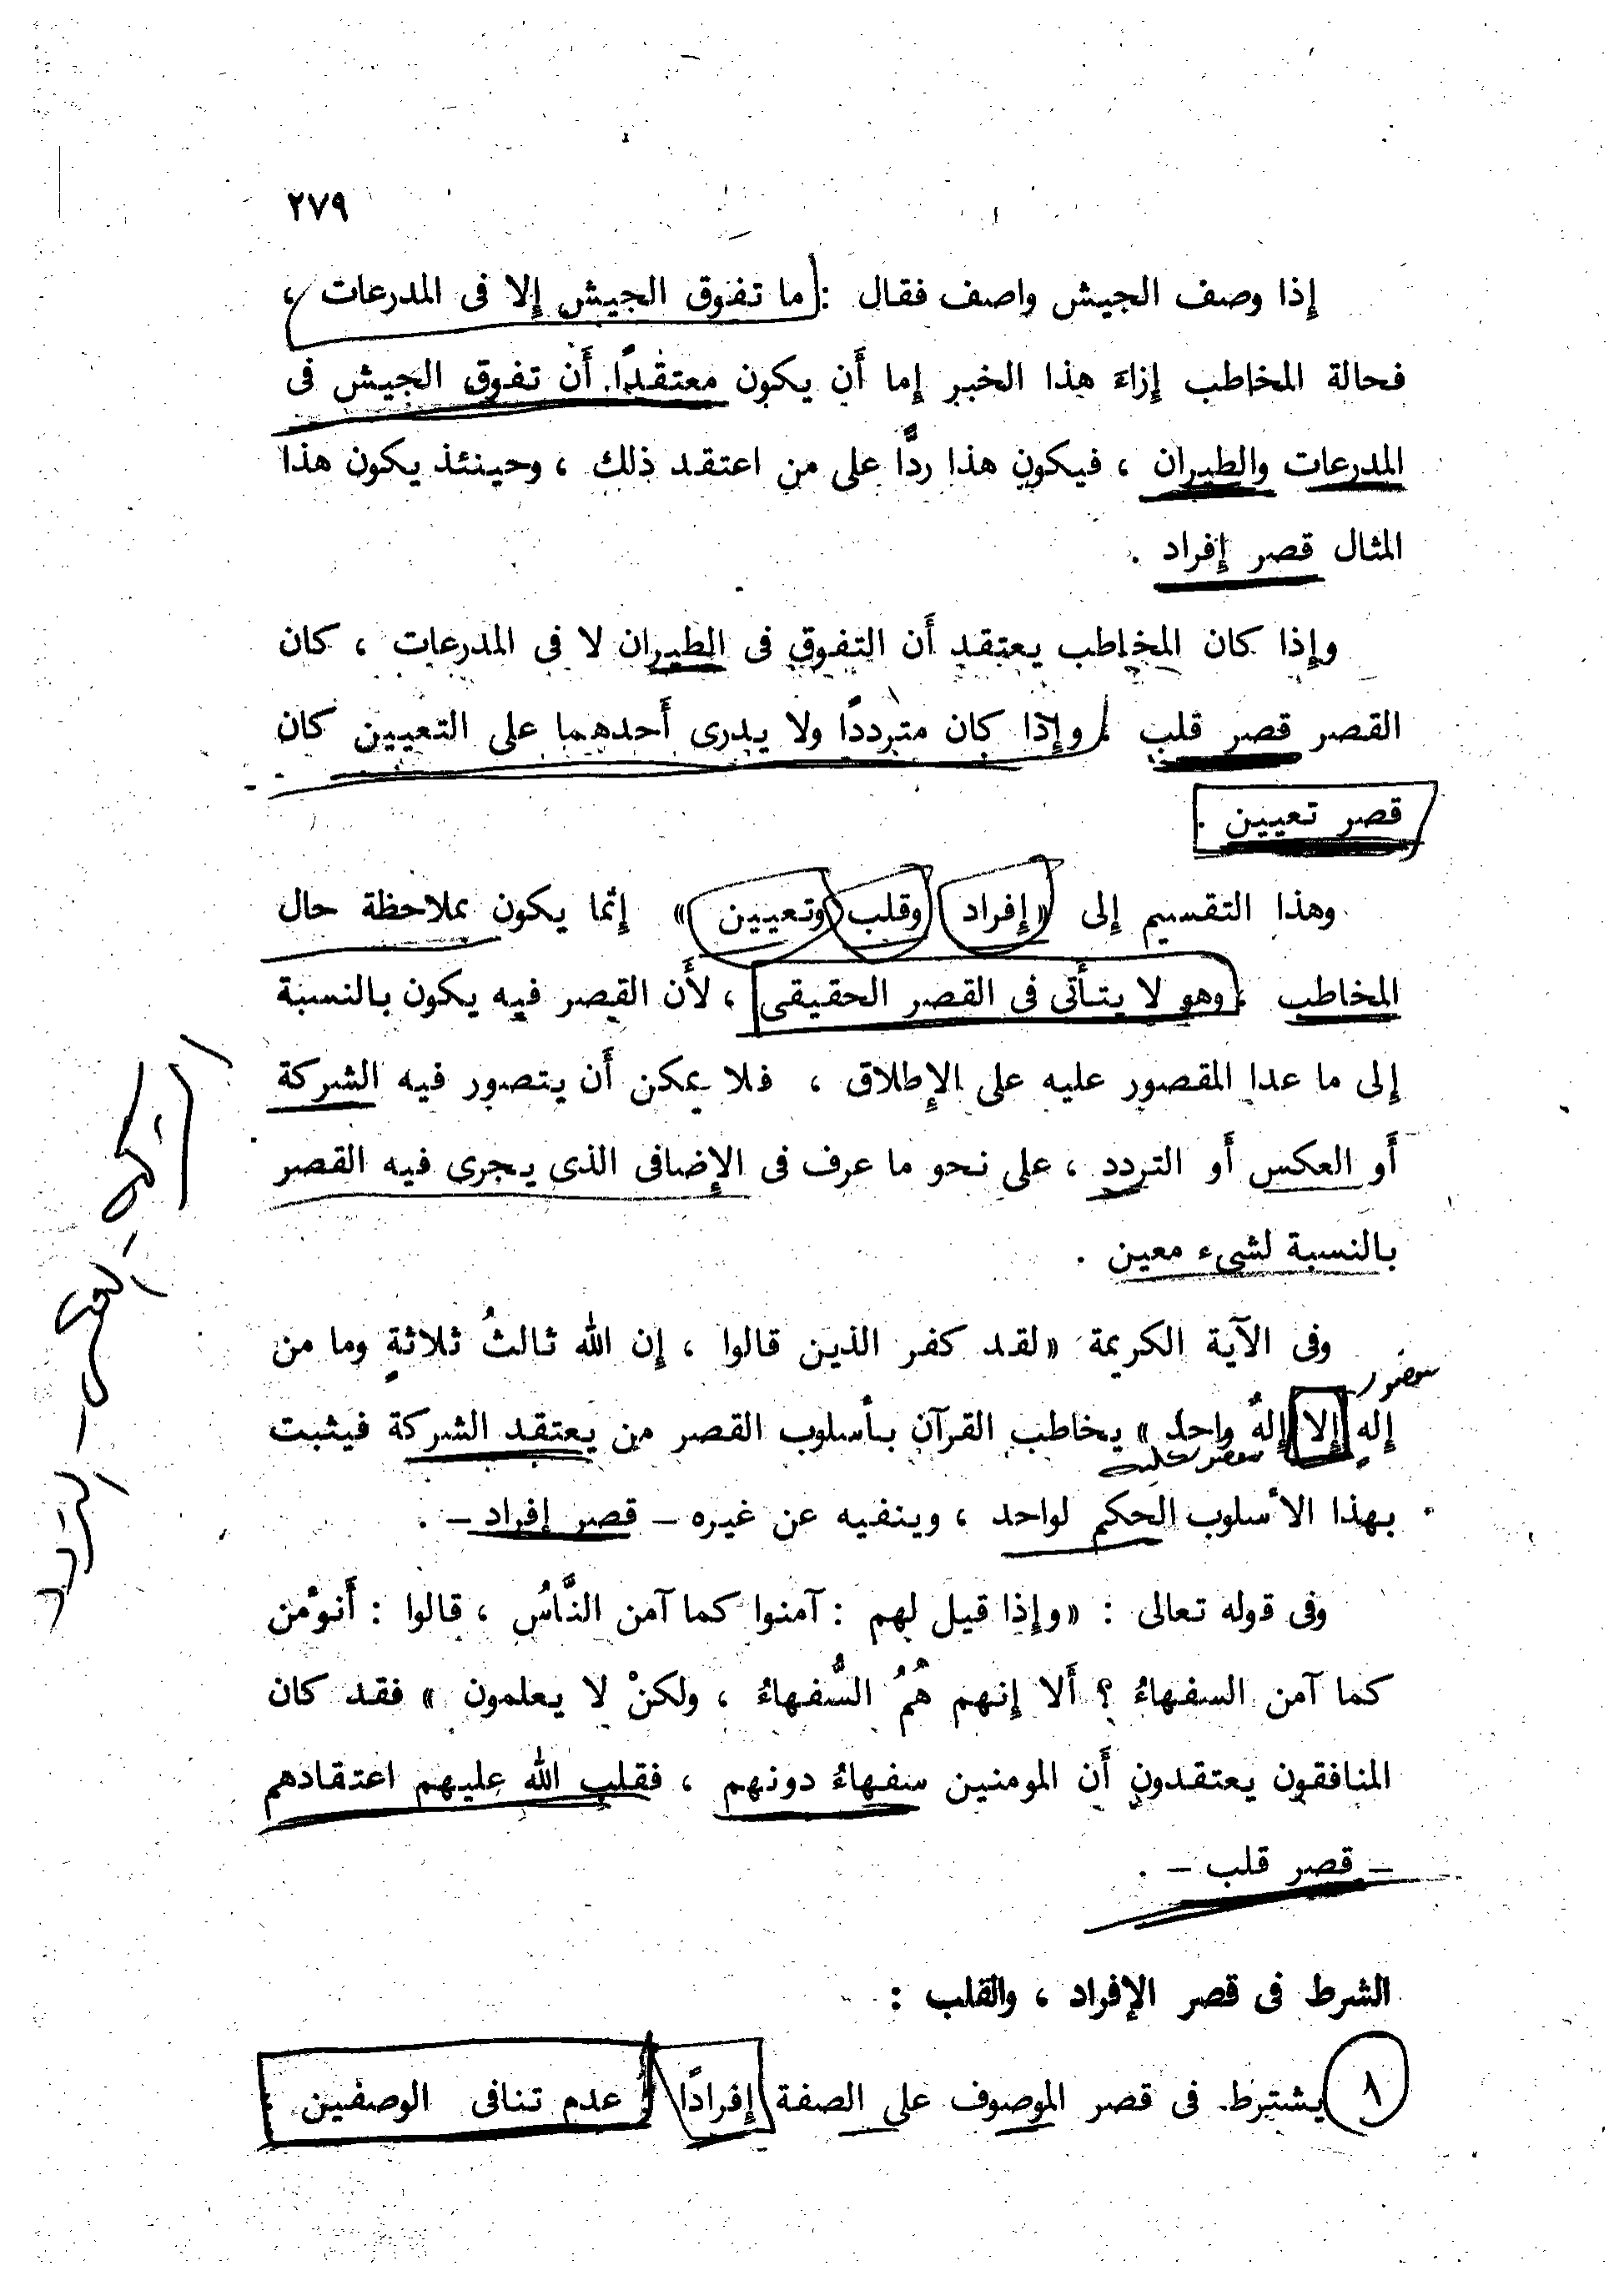 ٢٧٩
إِذا وصف الجيش واصف فقال : ما تفوق الجيش إِلا فى المدرعات ،
فحالة المخاطب إِزاءَ هذا الخبر إِما أَن يكون معتقدًا أَن تفوق الجيش فى
المدرعات والطيران ، فيكون هذا ردًّا على من اعتقد ذلك ، وحينئذ يكون هذا
المثال قصر إِفراد .
وإِذا كان المخاطب يعتقد أَن التفوق فى الطيران لا فى المدرعات ، كان
القصر قصر قلب ، وإِذا كان مترددًا ولا يدرى أَحدهما على التعيين كان
قصر تعيين .
وهذا التقسيم إِلى « إِفراد وقلب وتعيين » إِنما يكون بملاحظة حال
المخاطب ، وهو لا يتأَتى فى القصر الحقيقى ، لأَن القصر فيه يكون بالنسبة
إِلى ما عدا المقصور عليه على الإِطلاق ، فلا يمكن أَن يتصور فيه الشركة
أَو العكس أَو التردد ، على نحو ما عرف فى الإِضافى الذى يجرى فيه القصر
بالنسبة لشىء معين .
وفى الآية الكريمة « لقد كفر الذين قالوا ، إِن الله ثالثُ ثلاثةٍ وما من
إِلهٍ إِلا إِلهٌ واحدٌ » يخاطب القرآن بأسلوب القصر من يعتقد الشركة فيثبت
بهذا الأسلوب الحكم لواحد ، وينفيه عن غيره – قصر إفراد – .
وفى قوله تعالى : « وإِذا قيل لهم : آمنوا كما آمن النَّاسُ ، قالوا : أَنؤْمن
كما آمن السفهاءُ ؟ أَلا إِنهم هُمُ السُّفهاءُ ، ولكنْ لا يعلمون » فقد كان
المنافقون يعتقدون أَن المومنين سفهاءُ دونهم ، فقلب الله عليهم اعتقادهم
– قصر قلب – .
الشرط فى قصر الإفراد ، والقلب :
١ يشترط فى قصر الموصوف على الصفة إفرادًا عدم تنافى الوصفين
مقصور
مقصور عليه
الشركة – العكس – التردد